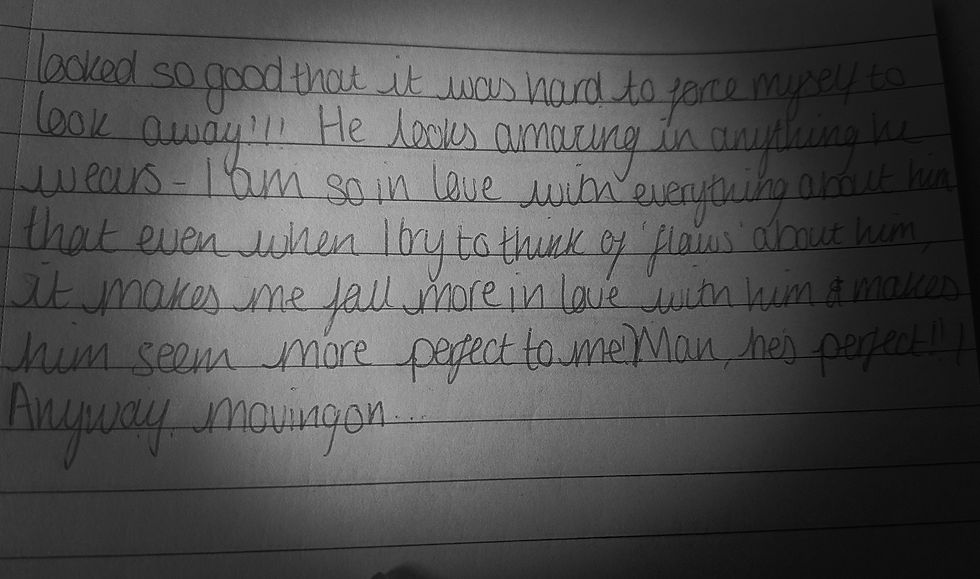 looked so good that it was hard to force myself to
look away!!! He looks amazing in anything he
wears - I am so in love with everything about him
that even when I try to think of 'flaws' about him,
it makes me fall more in love with him & makes
him seem more perfect to me! Man, he's perfect!!!
Anyway, moving on...